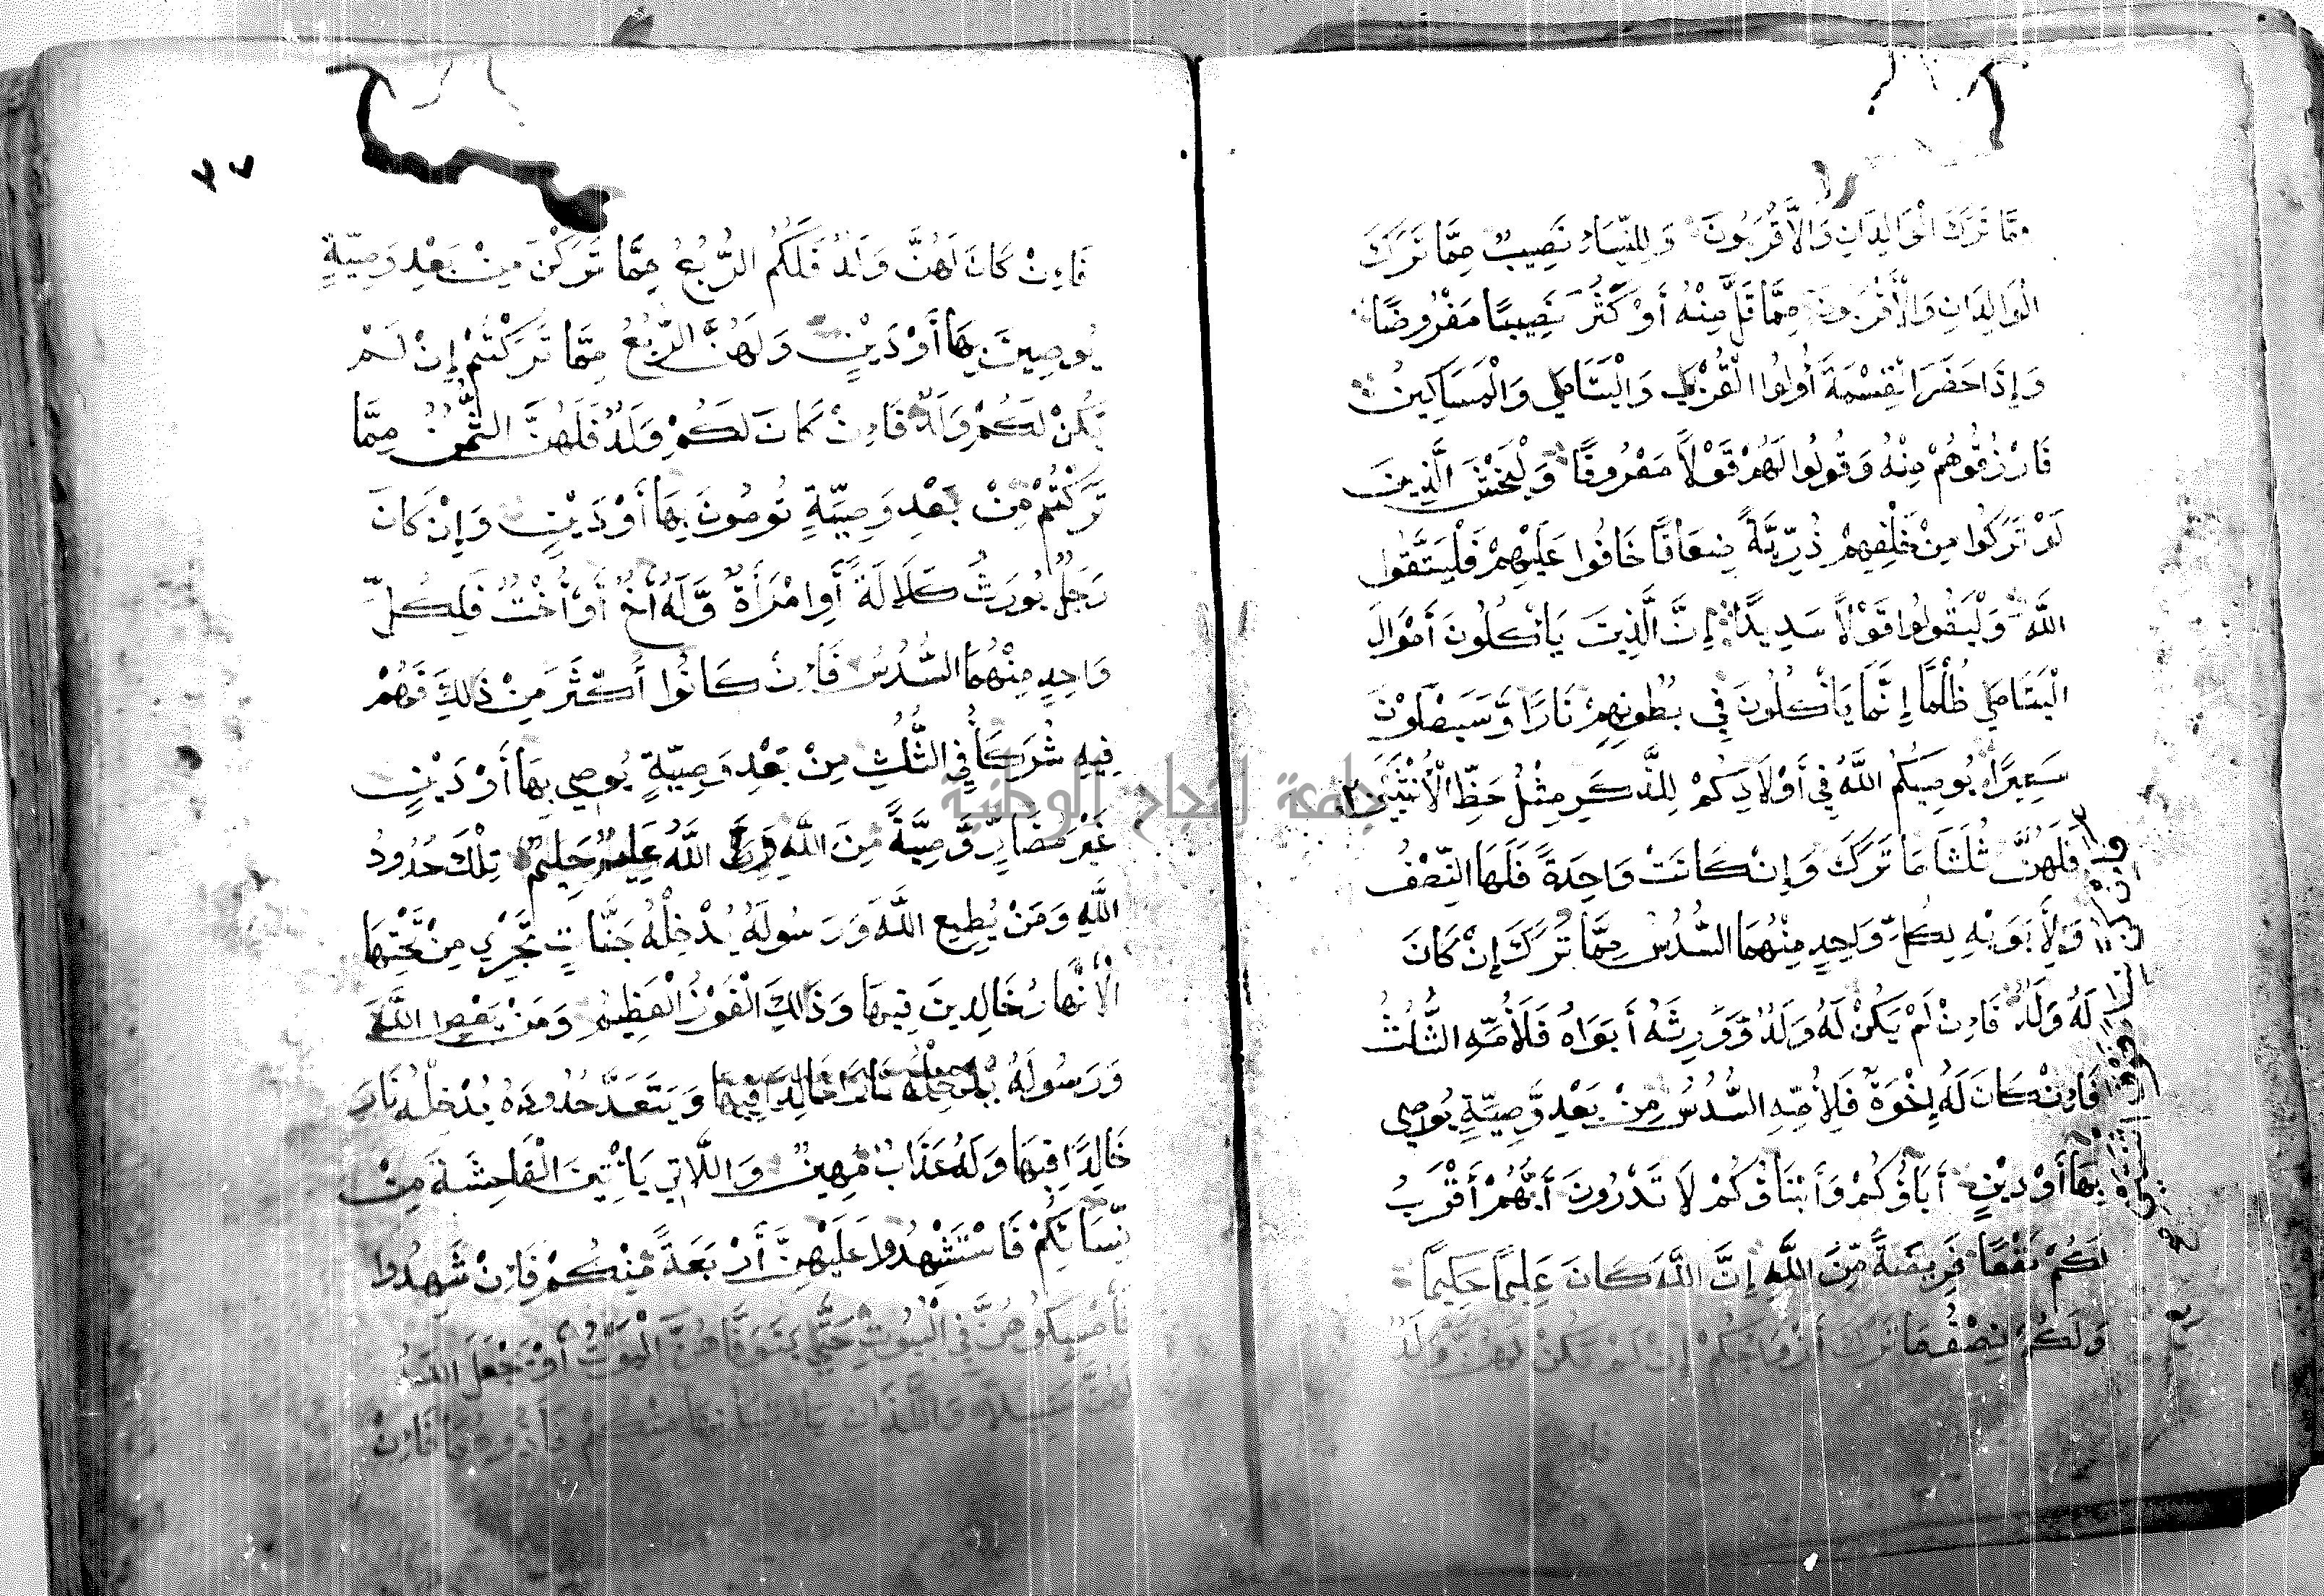 مِمَّا تَرَكَ الْوَالِدَانِ وَالْأَقْرَبُونَ وَلِلنِّسَاءِ نَصِيبٌ مِمَّا تَرَكَ
الْوَالِدَانِ وَالْأَقْرَبُونَ مِمَّا قَلَّ مِنْهُ أَوْ كَثُرَ نَصِيبًا مَفْرُوضًا
وَإِذَا حَضَرَ الْقِسْمَةَ أُولُوا الْقُرْبَى وَالْيَتَامَى وَالْمَسَاكِينُ
فَارْزُقُوهُمْ مِنْهُ وَقُولُوا لَهُمْ قَوْلًا مَعْرُوفًا وَلْيَخْشَ الَّذِينَ
لَوْ تَرَكُوا مِنْ خَلْفِهِمْ ذُرِّيَّةً ضِعَافًا خَافُوا عَلَيْهِمْ فَلْيَتَّقُوا
اللَّهَ وَلْيَقُولُوا قَوْلًا سَدِيدًا إِنَّ الَّذِينَ يَأْكُلُونَ أَمْوَالَ
الْيَتَامَى ظُلْمًا إِنَّمَا يَأْكُلُونَ فِي بُطُونِهِمْ نَارًا وَّسَيَصْلَوْنَ
سَعِيرًا يُوصِيكُمُ اللَّهُ فِي أَوْلَادِكُمْ لِلذَّكَرِ مِثْلُ حَظِّ الْأُنْثَيَيْنِ
فَلَهُنَّ ثُلُثَا مَا تَرَكَ وَإِنْ كَانَتْ وَاحِدَةً فَلَهَا النِّصْفُ
وَلِأَبَوَيْهِ لِكُلِّ وَاحِدٍ مِنْهُمَا السُّدُسُ مِمَّا تَرَكَ إِنْ كَانَ
لَهُ وَلَدٌ فَإِنْ لَمْ يَكُنْ لَهُ وَلَدٌ وَّوَرِثَهُ أَبَوَاهُ فَلِأُمِّهِ الثُّلُثُ
فَإِنْ كَانَ لَهُ إِخْوَةٌ فَلِأُمِّهِ السُّدُسُ مِنْ بَعْدِ وَصِيَّةٍ يُوصِي
بِهَا أَوْ دَيْنٍ أَبَاؤُكُمْ وَأَبْنَاؤُكُمْ لَا تَدْرُونَ أَيُّهُمْ أَقْرَبُ
لَكُمْ نَفْعًا فَرِيضَةً مِّنَ اللَّهِ إِنَّ اللَّهَ كَانَ عَلِيمًا حَكِيمًا
وَلَكُمْ نِصْفُ مَا تَرَكَ أَزْوَاجُكُمْ إِنْ لَمْ يَكُنْ لَهُنَّ وَلَدٌ
فَإِنْ كُنَّ نِسَاءً فَوْقَ اثْنَتَيْنِ صح
٦٧
فَإِنْ كَانَ لَهُنَّ وَلَدٌ فَلَكُمُ الرُّبُعُ مِمَّا تَرَكْنَ مِنْ بَعْدِ وَصِيَّةٍ
يُوصِينَ بِهَا أَوْ دَيْنٍ وَلَهُنَّ الرُّبُعُ مِمَّا تَرَكْتُمْ إِنْ لَمْ
يَكُنْ لَكُمْ وَلَدٌ فَإِنْ كَانَ لَكُمْ وَلَدٌ فَلَهُنَّ الثُّمُنُ مِمَّا
تَرَكْتُمْ مِنْ بَعْدِ وَصِيَّةٍ تُوصُونَ بِهَا أَوْ دَيْنٍ وَإِنْ كَانَ
رَجُلٌ يُورَثُ كَلَالَةً أَوِ امْرَأَةٌ وَّلَهُ أَخٌ أَوْ أُخْتٌ فَلِكُلِّ
وَاحِدٍ مِنْهُمَا السُّدُسُ فَإِنْ كَانُوا أَكْثَرَ مِنْ ذَلِكَ فَهُمْ
فِيهِ شُرَكَاءُ فِي الثُّلُثِ مِنْ بَعْدِ وَصِيَّةٍ يُوصِي بِهَا أَوْ دَيْنٍ
غَيْرَ مُضَارٍّ وَّصِيَّةً مِنَ اللَّهِ اللَّهُ عَلِيمٌ حَلِيمٌ تِلْكَ حُدُودُ
اللَّهِ وَمَنْ يُطِيعِ اللَّهَ وَرَسُولَهُ يُدْخِلْهُ جَنَّاتٍ تَجْرِي مِنْ تَحْتِهَا
الْأَنْهَارُ خَالِدِينَ فِيهَا وَذَلِكَ الْفَوْزُ الْعَظِيمُ وَمَنْ يَعْصِ اللَّهَ
وَرَسُولَهُ يُدْخِلْهُ نَارًا خَالِدًا فِيهَا وَيَتَعَدَّ حُدُودَهُ يُدْخِلْهُ نَارًا
خَالِدًا فِيهَا وَلَهُ عَذَابٌ مُهِينٌ وَاللَّاتِي يَأْتِينَ الْفَاحِشَةَ مِنْ
نِّسَائِكُمْ فَاسْتَشْهِدُوا عَلَيْهِنَّ أَرْبَعَةً مِّنْكُمْ فَإِنْ شَهِدُوا
فَأَمْسِكُوهُنَّ فِي الْبُيُوتِ حَتَّى يَتَوَفَّاهُنَّ الْمَوْتُ أَوْ يَجْعَلَ اللَّهُ
لَهُنَّ سَبِيلًا وَاللَّذَانِ يَأْتِيَانِهَا مِنْكُمْ فَأَذُوهُمَا فَإِنْ
جامعة النجاح الوطنية